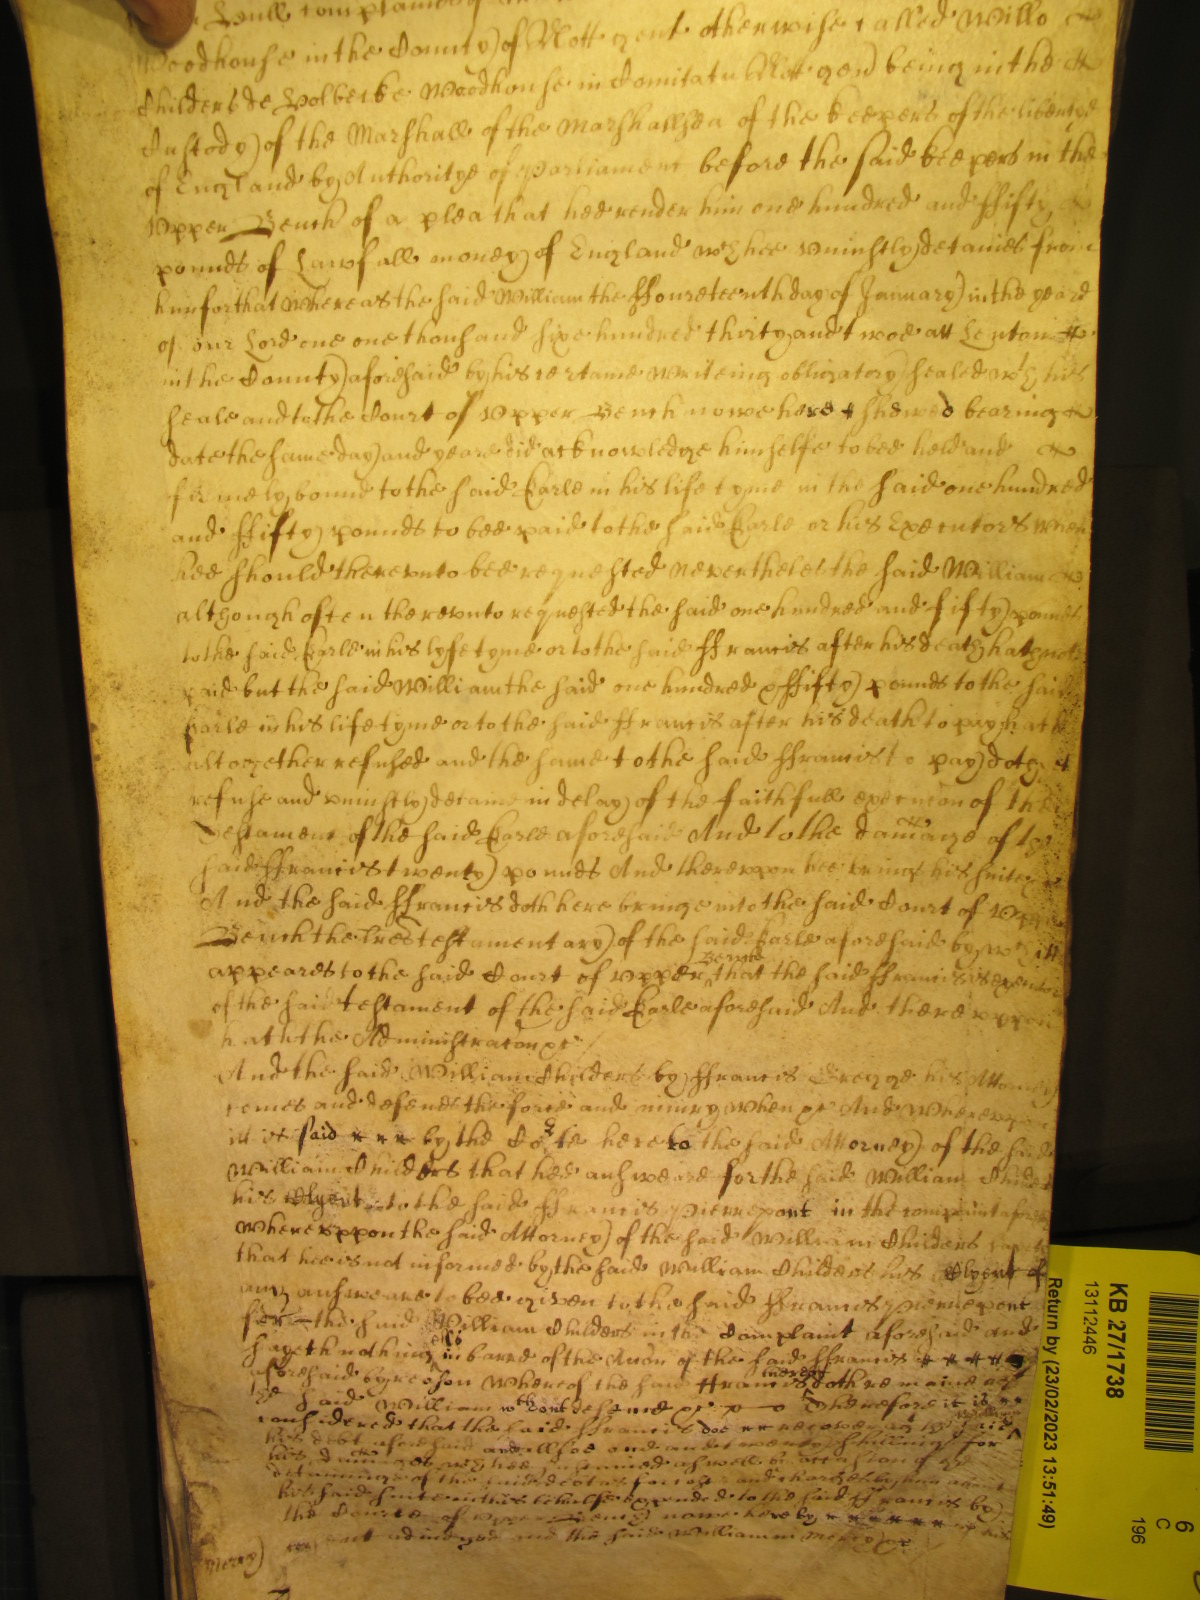 Hull complaineth of
Woodhouse in the County of Nott gent otherwise called Willm
Childers de Wolbecke Woodhouse in Comitatu Nott gen being in the
Custody of the Marshall of the Marshallsea of the keepers of the libertye
of England by Authoritye of Parliament before the said keepers in the
Upper Bench of a plea that hee render him one hundred and ffifty
pounds of Lawfull money of England wch hee uniustly detaines from
him for that whereas the said William the ffoureteenth day of January in the yeare
of our Lord one thousand sixe hundred thirty and twoe att Lenton
in the County aforesaid by his certaine writeing obligatory sealed wth his
seale and to the Court of Upper Bench nowe here shewed bearing
date the same day and yeare did acknowledge himselfe to bee held and
firmely bound to the said Earle in his life tyme in the said one hundred
and ffifty pounds to bee paid to the said Earle or his Executors when
hee should thereunto bee requested neverthelesthe said William
although often thereunto requested the said one hundred and fifty pounds
to the said Earle in his lyfe tyme or to the said ffrancis after his death hath not
paid but the said William the said one hundred & ffifty pounds to the said
Earle in his life tyme or to the said ffrancis after his death to pay hath
altogether refused and the same to the said ffrancis to pay doth yet
refuse and uniustly detaine in delay of the faithfull execucion of the
Testament of the said Earle aforesaid And to the damage of the
said ffrancis twenty pounds And thereuppon hee brings his suite
And the said ffrancis doth here bringe into the said Court of Upper
Bench the lres testamentary of the said Earle aforesaid by wch itt
appeares to the said Court of Upper Bench that the said ffrancis is executor
of the said testament of the said Earle aforesaid And thereuppon
hath the Administracon &c
And the said William Childers by ffrancis Gregge his Attorney
comes and defends the force and iniury when &c And whereuppon
itt is said by the Co te here to the said Attorney of the said
William Childers that hee answeare for the said William Childers
his Clyent to the said ffrancis Pierrepont in the complaint aforesaid
whereuppon the said Attorney of the said William Childers sayeth
that hee is not informed by the said William Childers his Clyent of
any answeare to bee given to the said ffrancis Pierrepont
for the said William Childers in the Complaint aforesaid and
sayeth nothing in barre of the Accon of the said ffrancis
aforesaid by reason whereof the said ffrancis thereby doth remaine agt
the said William wthout defence &c Therefore it is
considered that the said ffrancis doe recover agt the said William
his debt aforesaid and allsoe and twenty shillings for
his damages wch hee susteyned aswell by occasion of the
detaininge of the said debt as for costs and charges by him about
his said suite in this behalfe expended to the said ffrancis by
the Court of Upper Bench nowe here by his
assent adiudged and the said William in mercy &c
mercy
KB 27/1738
13112446
Return by (23/02/2023 13:51:49)
6
C
196